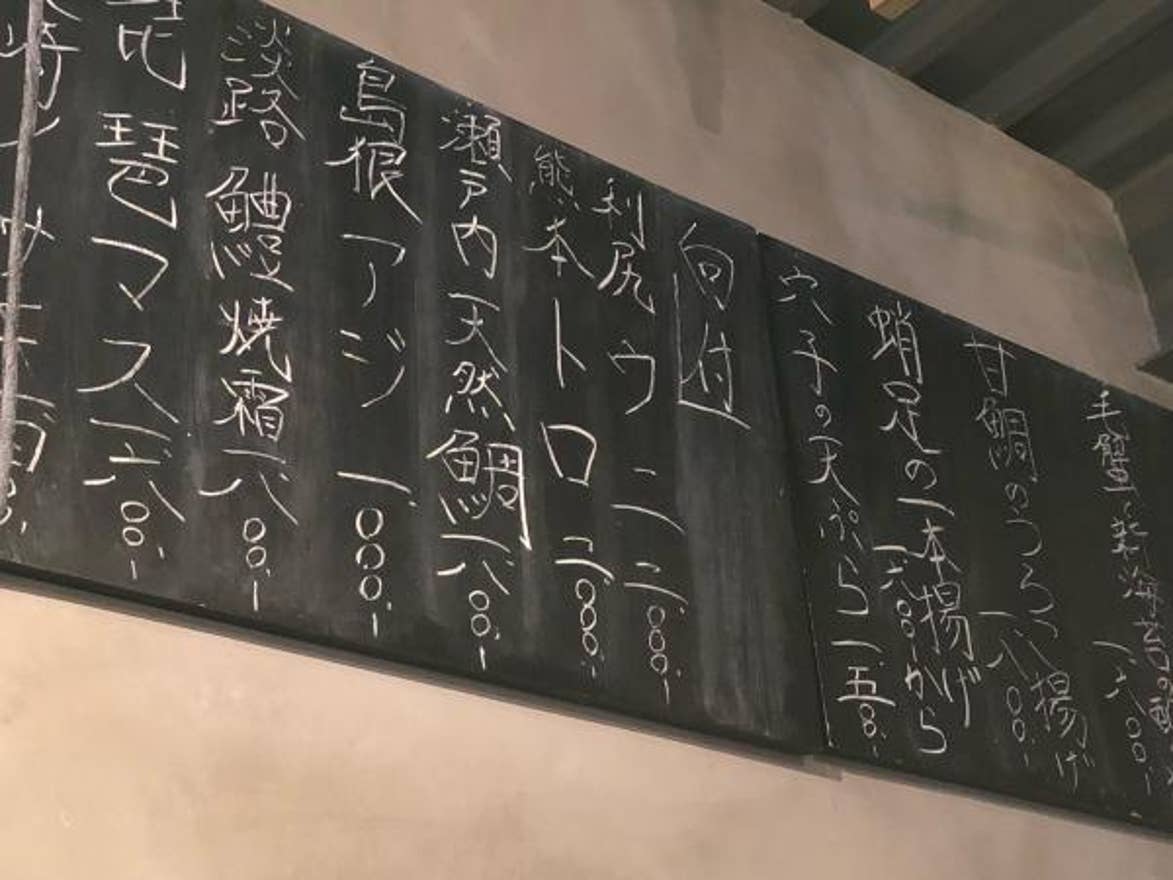 毛蟹
甘鯛のうろこ揚げ
一八〇〇.-
蛸足の一本揚げ
一六〇〇.-から
穴子の天ぷら 一五〇〇.-
向付
利尻ウニ 二.〇〇〇.-
熊本トロ 二〇〇〇.-
瀬戸内天然鯛 一八〇〇.-
島根アジ 一〇〇〇.-
淡路 鱧焼霜 一八〇〇.-
琵琶マス 一六〇〇.-